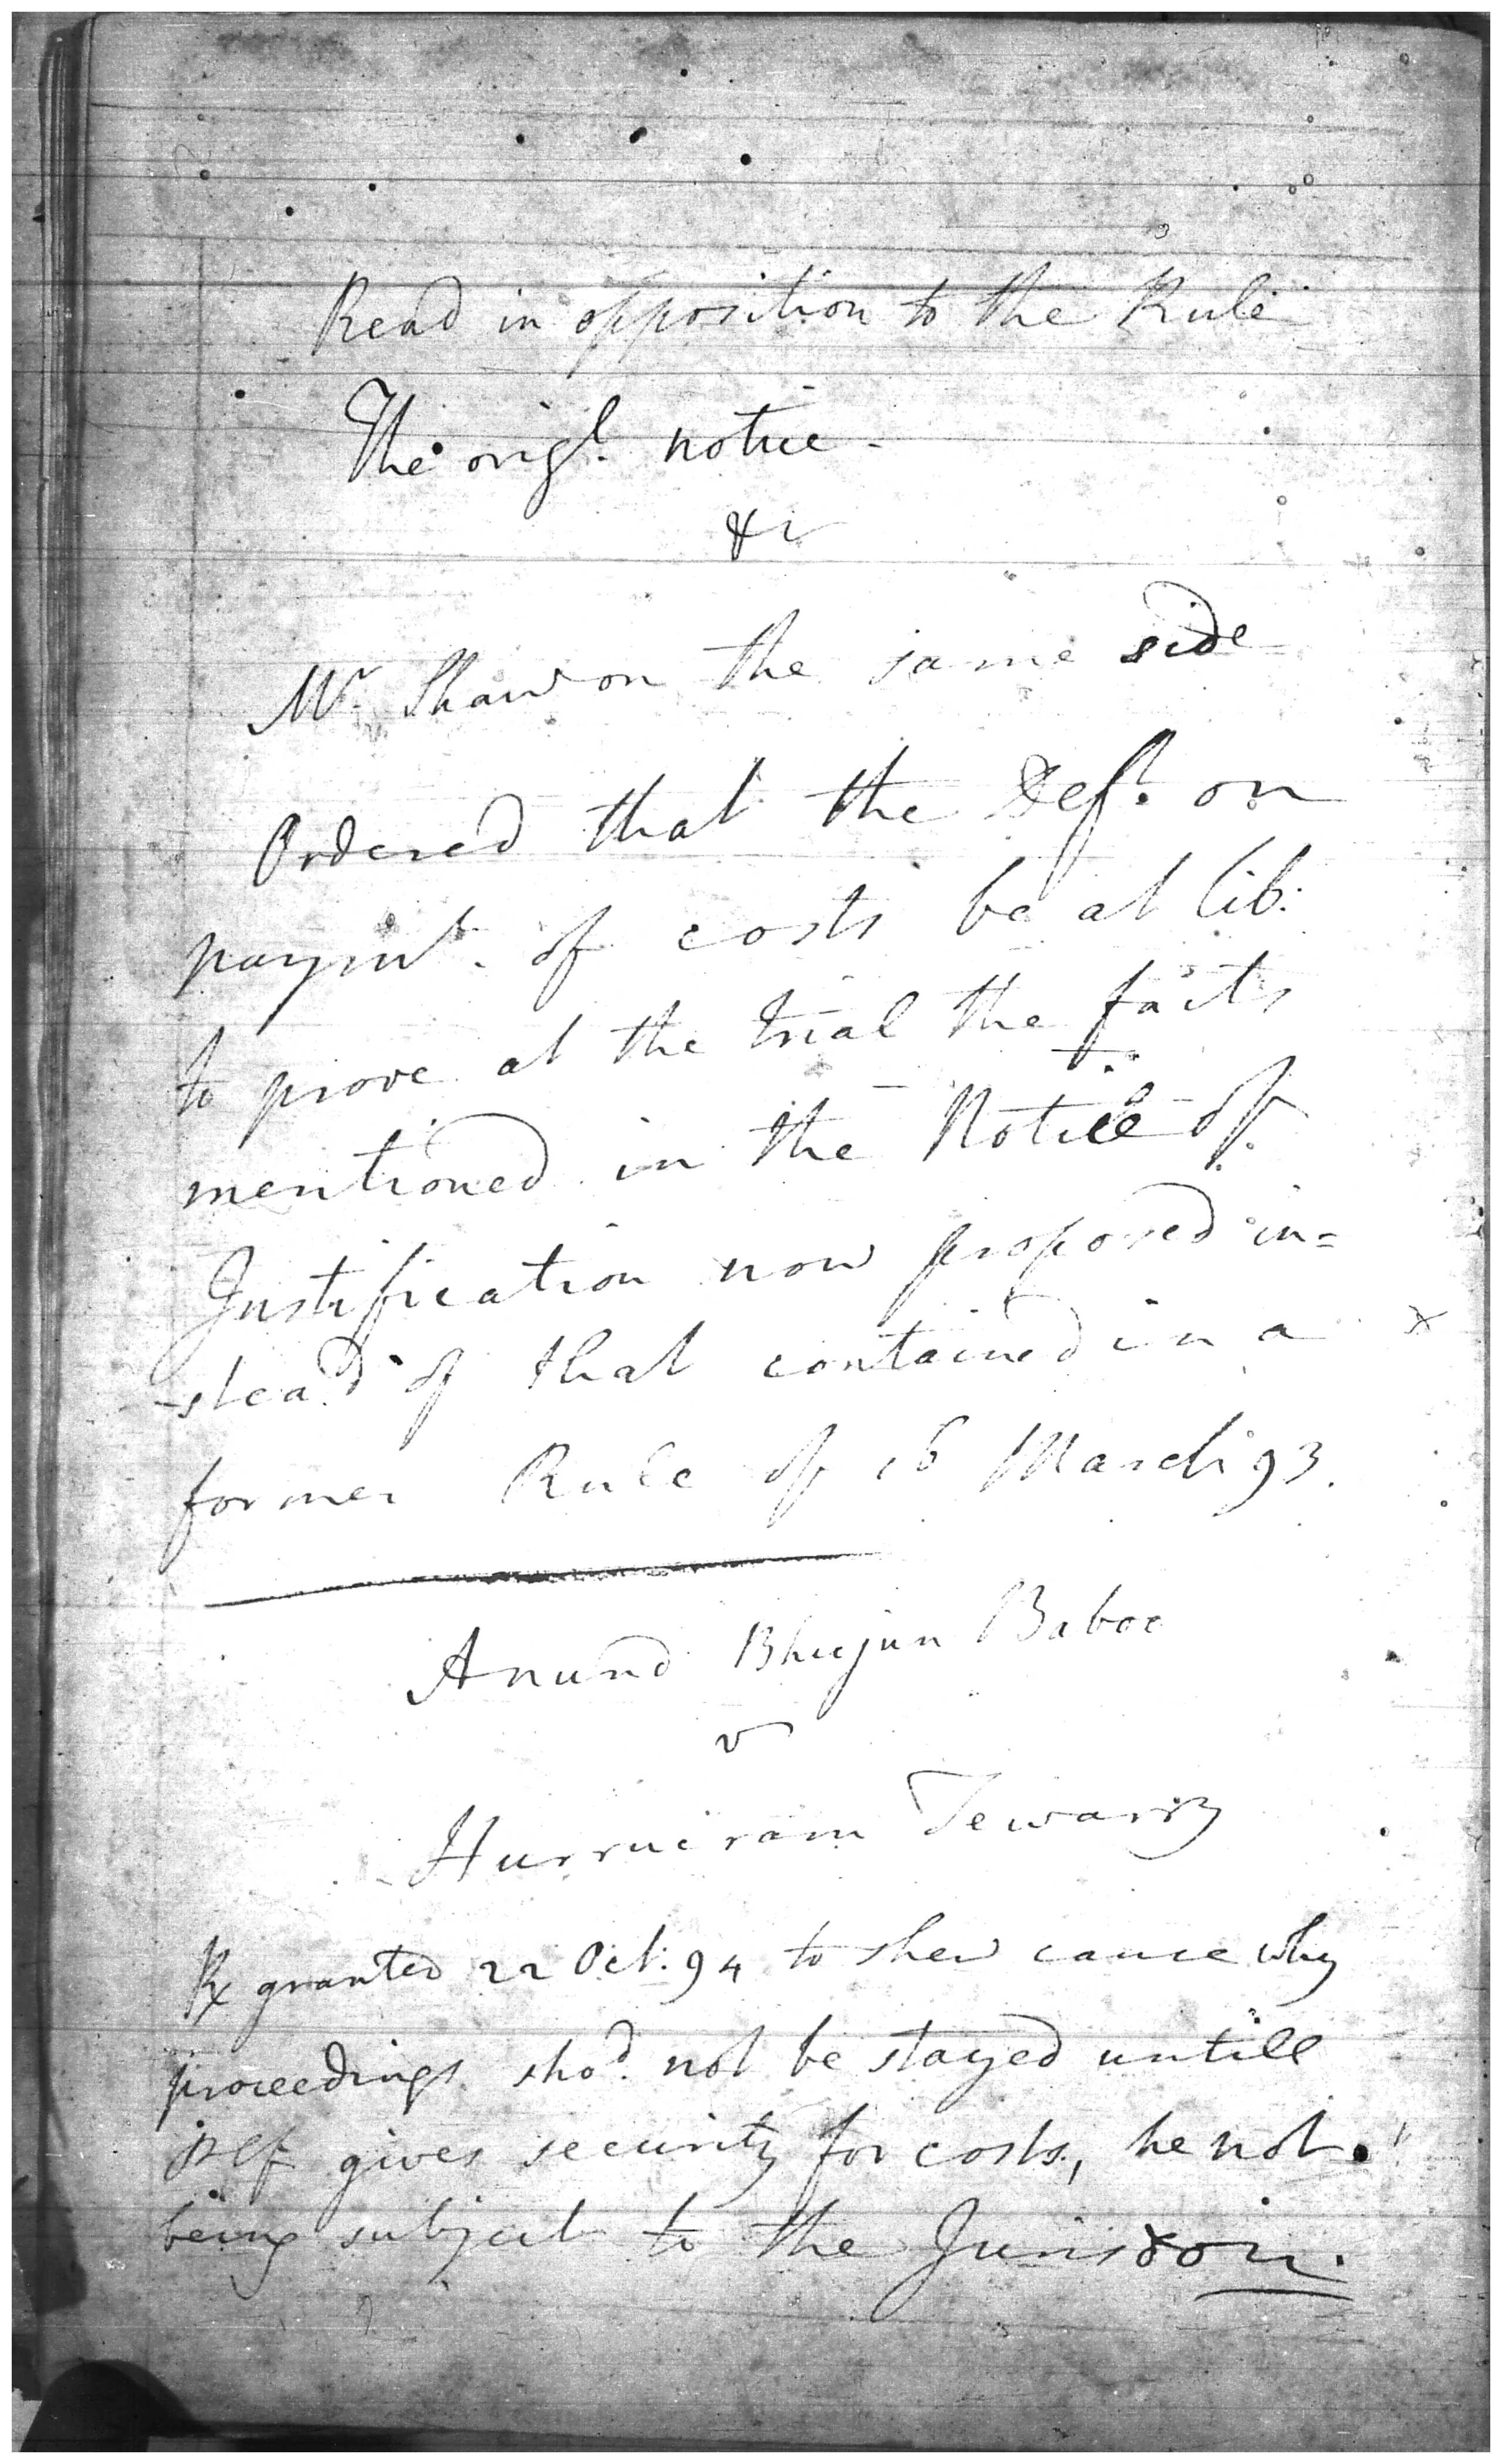 Read in opposition to the Rule
The origl. notice -
&c
Mr. Shaw on the same side
Ordered that the Deft. on
paymt. of costs be at lib:
to prove at the trial the facts
mentioned in the Notice of
Justification now proposed in=
-stead of that contained in a x
former Rule of 16 March 93.
Anund Bhujun Baboo
v
Hurruiram Tewarry
Rx granted 22 Oct. 94 to shew cause why
proceedings shod. not be stayed untill
Plf gives security for costs, he not
being subject to the Jurisdon.